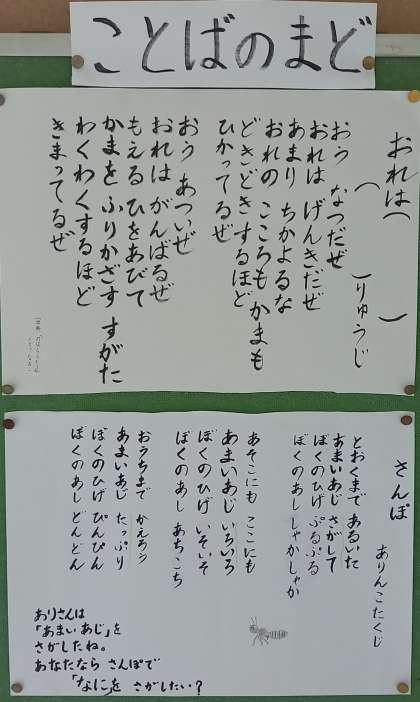 ことばのまど
おれは(　　　)
(　　　)りゅうじ
おう なつだぜ
おれは げんきだぜ
あまり ちかよるな
おれの こころも かまも
どきどきするほど
ひかってるぜ
おう あついぜ
おれは がんばるぜ
もえる ひをあびて
かまを ふりかざす すがた
わくわくするほど
きまってるぜ
さんぽ
ありんこたくじ
とおくまで あるいた
あまいあじ さがして
ぼくのひげ ぷるぷる
ぼくのあし しゃかしゃか
あそこにも ここにも
あまいあじ いろいろ
ぼくのひげ いそいそ
ぼくのあし あちこち
おうちまで かえろう
あまいあじ たっぷり
ぼくのひげ ぴんぴん
ぼくのあし どんどん
ありさんは
「あまいあじ」を
さがしたね。
あなたなら さんぽで
「なに」を さがしたい?